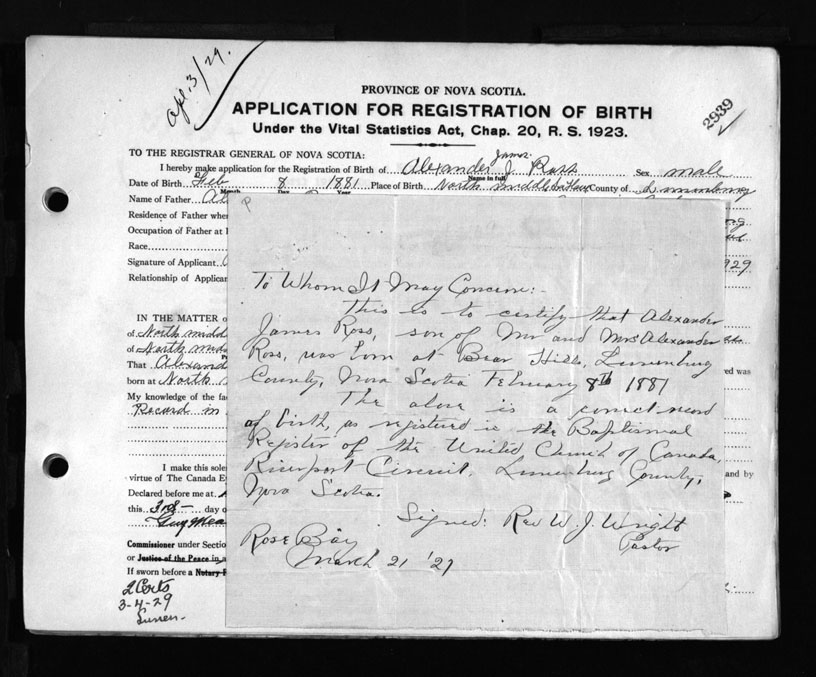 Apl. 3/29.
2939
PROVINCE OF NOVA SCOTIA.
APPLICATION FOR REGISTRATION OF BIRTH
Under the Vital Statistics Act, Chap. 20, R. S. 1923.
TO THE REGISTRAR GENERAL OF NOVA SCOTIA:
James
I hereby make application for the Registration of Birth of Alexander J. Ross Sex male
Name in full
Date of Birth Feb 8 1881 Place of Birth North Middle County of Lunenburg
Month Day Year
Name of Father
Residence of Father
Occupation of Father at
Race
Signature of Applicant
Relationship of
IN THE MATTER
of North
of North
That
born at North
My knowledge of the
Record
I make this
virtue of The Canada
Declared before me at
this 3rd day
Guy
Commissioner under
or Justice of the Peace in
If sworn before a Notary
2 Certs
3-4-29
P
To Whom It May Concern:-
This is to certify that Alexander
James Ross, son of Mr and Mrs Alexander
Ross, was born at Bear Hill, Lunenburg
County, Nova Scotia February 8th 1881
The above is a correct record
of birth, as registered in the Baptismal
Register of the United Church of Canada,
Riverport Circuit, Lunenburg County,
Nova Scotia.
Signed: Rev W. J. Wright
Pastor
Rose Bay
March 21 '29